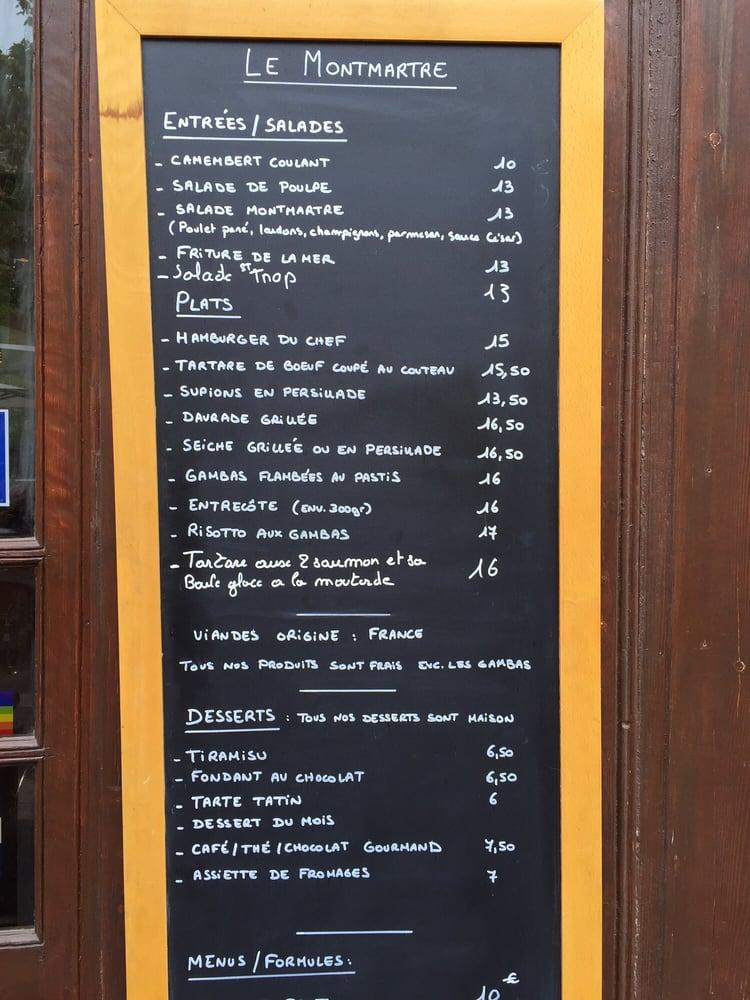 LE MONTMARTRE
ENTRÉES / SALADES
- CAMEMBERT COULANT 10
- SALADE DE POULPE 13
- SALADE MONTMARTRE 13
(Poulet pané, laudons, champignons, parmesan, sauce César)
- FRITURE DE LA MER 13
- Salade St Trop 13
PLATS
- HAMBURGER DU CHEF 15
- TARTARE DE BOEUF COUPÉ AU COUTEAU 15,50
- SUPIONS EN PERSILLADE 13,50
- DAURADE GRILLÉE 16,50
- SEICHE GRILLÉE OU EN PERSILLADE 16,50
- GAMBAS FLAMBÉES AU PASTIS 16
- ENTRECÔTE (ENV. 300gr) 16
- RISOTTO AUX GAMBAS 17
- Tartare aux 2 saumon et sa 16
Boule glace a la moutarde
VIANDES ORIGINE : FRANCE
TOUS NOS PRODUITS SONT FRAIS EXC. LES GAMBAS
DESSERTS : TOUS NOS DESSERTS SONT MAISON
- TIRAMISU 6,50
- FONDANT AU CHOCOLAT 6,50
- TARTE TATIN 6
- DESSERT DU MOIS
- CAFÉ / THÉ / CHOCOLAT GOURMAND 7,50
- ASSIETTE DE FROMAGES 7
MENUS / FORMULES :
10 €